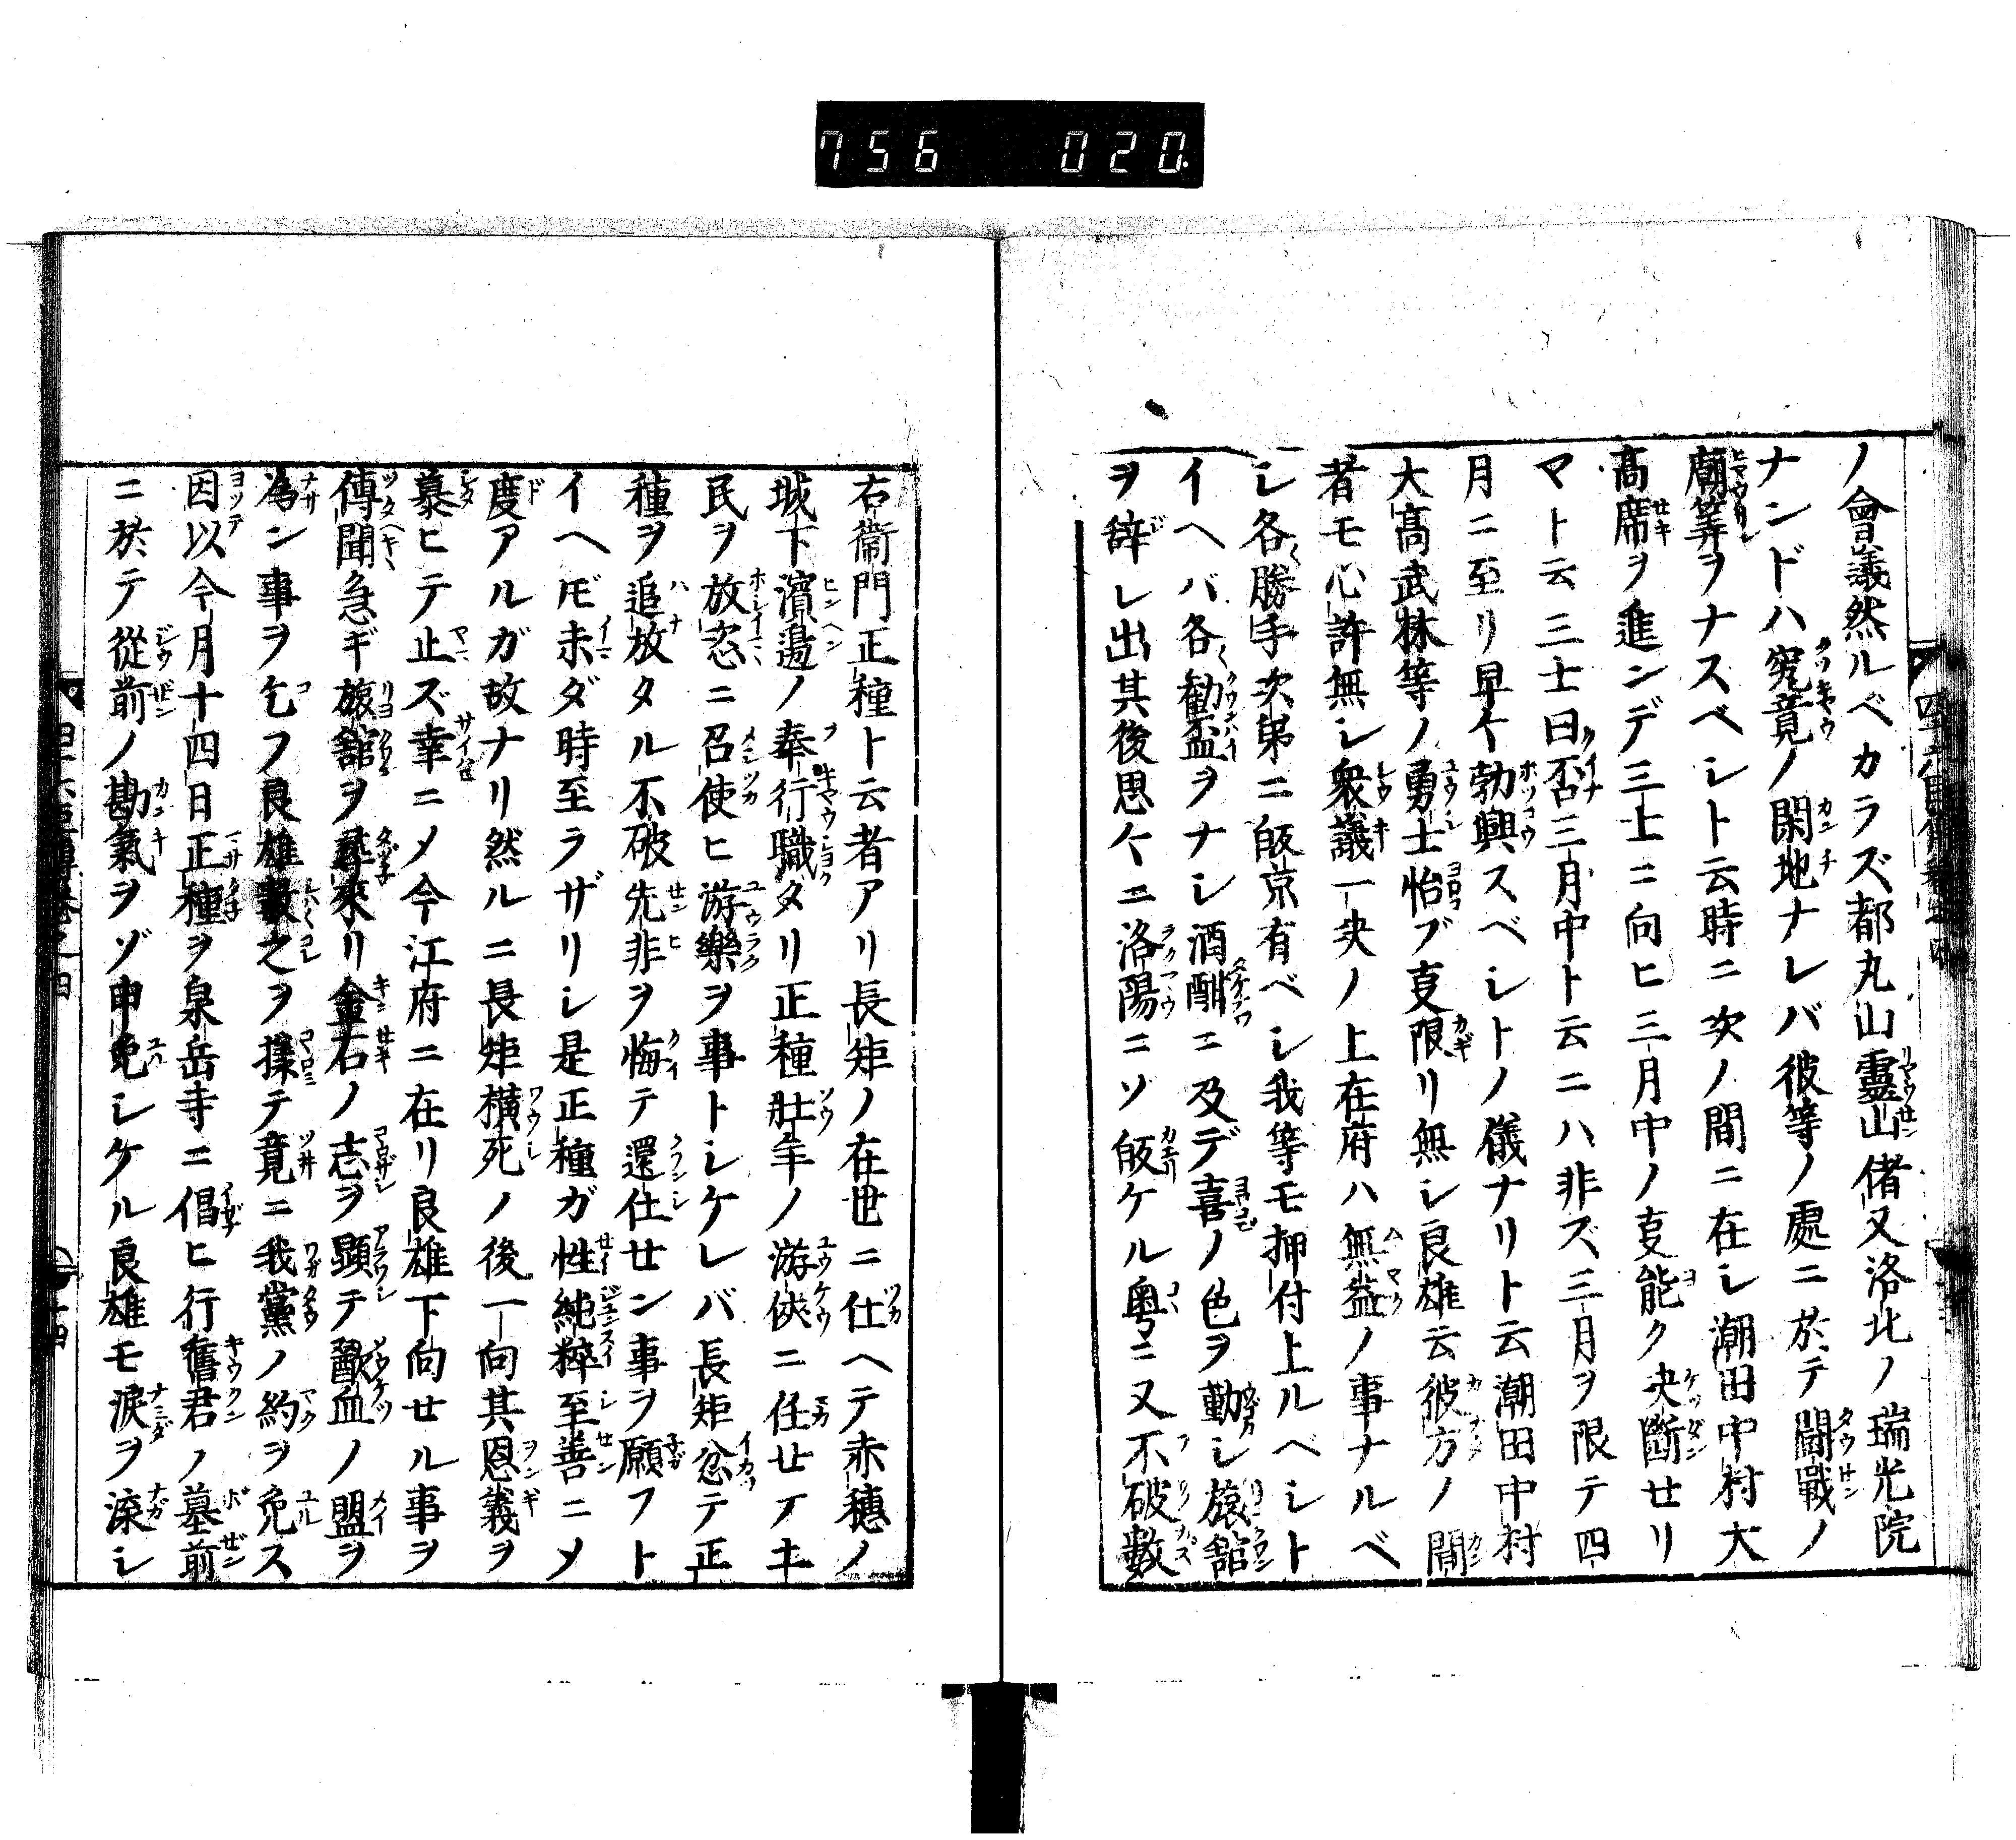 756 020
ノ會議然ルベカラズ都丸山靈山偖又洛北ノ瑞光院
ナンドハ究竟ノ閑地ナレバ彼等ノ處ニ於テ鬪戰ノ
廟筭ヲナスベシト云時ニ次ノ間ニ在シ潮田中村大
髙席ヲ進ンデ三士ニ向ヒ三月中ノ叓能ク决斷せリ
マト云三士曰否三月中ト云ニハ非ズ三月ヲ限テ四
月ニ至リ早ク勃興スベシトノ儀ナリト云潮田中村
大髙武林等ノ勇士怡ブ叓限リ無シ良雄云彼方ノ間
者モ心許無シ衆議一决ノ上在府ハ無益ノ事ナルベ
シ各勝手次第ニ皈京有ベシ我等モ押付上ルベシト
イヘバ各勧盃ヲナシ酒酣ニ及デ喜ノ色ヲ動シ旅舘
ヲ辞シ出其後思々ニ洛陽ニソ皈ケル粤ニ又不破數
右衞門正種ト云者アリ長矩ノ在世ニ仕ヘテ赤穗ノ
城下濱邉ノ奉行職タリ正種壯年ノ游俠ニ任せテ土
民ヲ放恣ニ召使ヒ游樂ヲ事トシケレバ長矩忿テ正
種ヲ追放タル不破先非ヲ悔テ還仕せン事ヲ願フト
イヘ𪜈未ダ時至ラザリシ是正種ガ性純粹至善ニメ
度アルガ故ナリ然ルニ長矩横死ノ後一向其恩義ヲ
慕ヒテ止ズ幸ニメ今江府ニ在リ良雄下向せル事ヲ
傳聞急ギ旅舘ヲ尋來リ金石ノ志ヲ顕テ歃血ノ盟ヲ
為ン事ヲ乞フ良雄數之ヲ揉テ竟ニ我黨ノ約ヲ免ス
因以今月十四日正種ヲ泉岳寺ニ倡ヒ行舊君ノ墓前
ニ於テ從前ノ勘氣ヲゾ申免シケル良雄モ涙ヲ滾シ